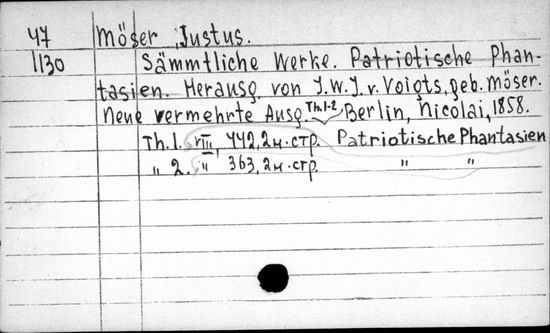 47 Möser, Justus.
1130 Sämmtliche Werke. Patriotische Phan-
tasien. Herausg. von J.W.J.v. Voigts, geb. Möser.
Neue vermehrte Ausg. Th.1-2 Berlin, Nicolai, 1858.
Th.1. VIII, 442, 2н.стр. Patriotische Phantasien
" 2. II 363, 2н.стр. " "